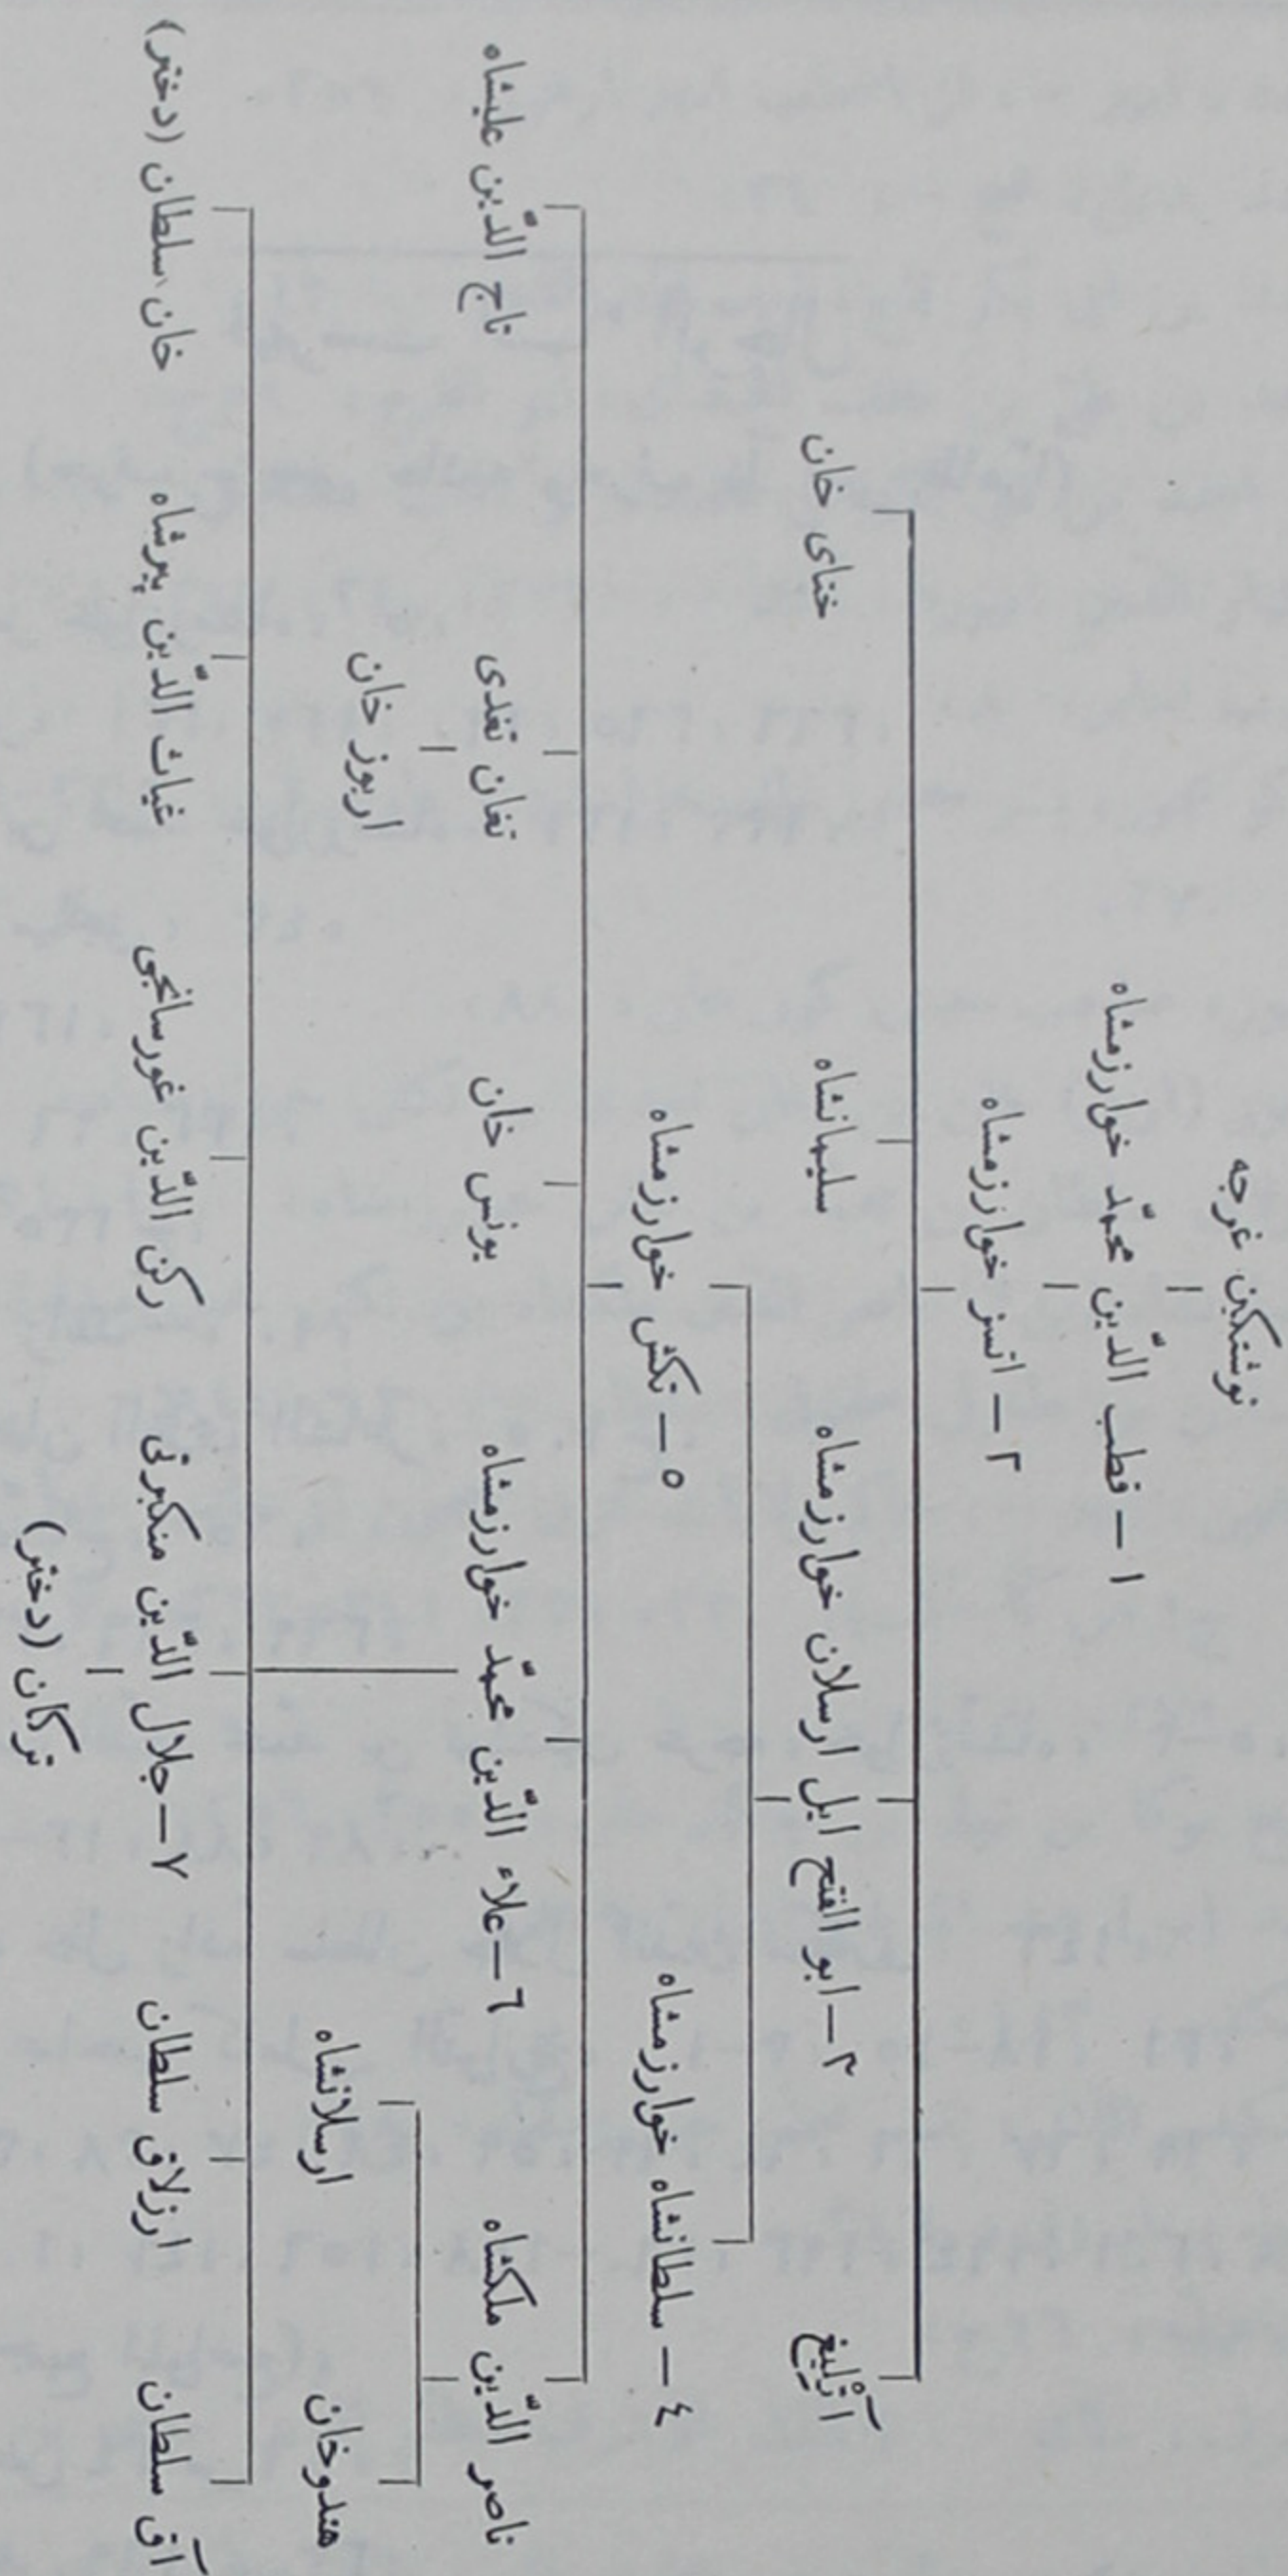 نوشتکین غرجه
۱ – قطب الدّین محمّد خوارزمشاه
۲ – اتسز خوارزمشاه
آتْلِیغ
۳ – ابو الفتح ایل ارسلان خوارزمشاه
سلیمانشاه
ختای خان
٤ – سلطانشاه خوارزمشاه
۵ – تکش خوارزمشاه
ناصر الدّین ملکشاه
٦ – علاء الدّین محمّد خوارزمشاه
یونس خان
تغان تغدی
تاج الدّین علیشاه
هندوخان
ارسلانشاه
اربوز خان
آق سلطان
ارزلاق سلطان
۷ – جلال الدّین منکبرتی
رکن الدّین غورسانجی
غیاث الدّین پیرشاه
خان سلطان (دختر)
ترکان (دختر)